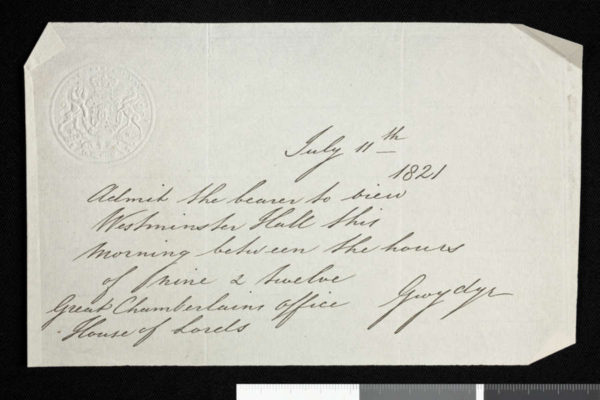 July 11th
1821
Admit the bearer to view
Westminster Hall this
morning between the hours
of nine & twelve
Great Chamberlains office Gwydyr
House of Lords